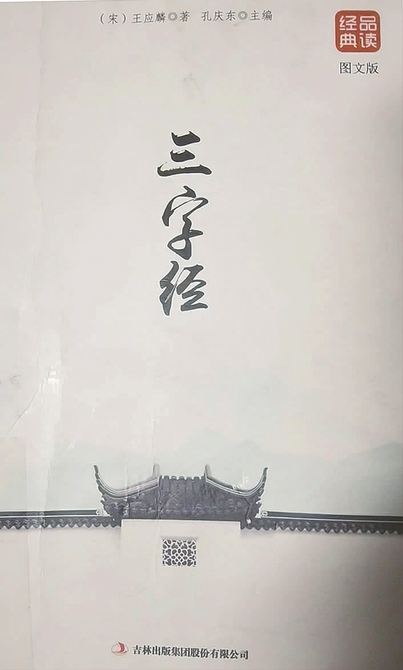 （宋）王应麟◎著 孔庆东◎主编
品读
经典
图文版
三字经
吉林出版集团股份有限公司